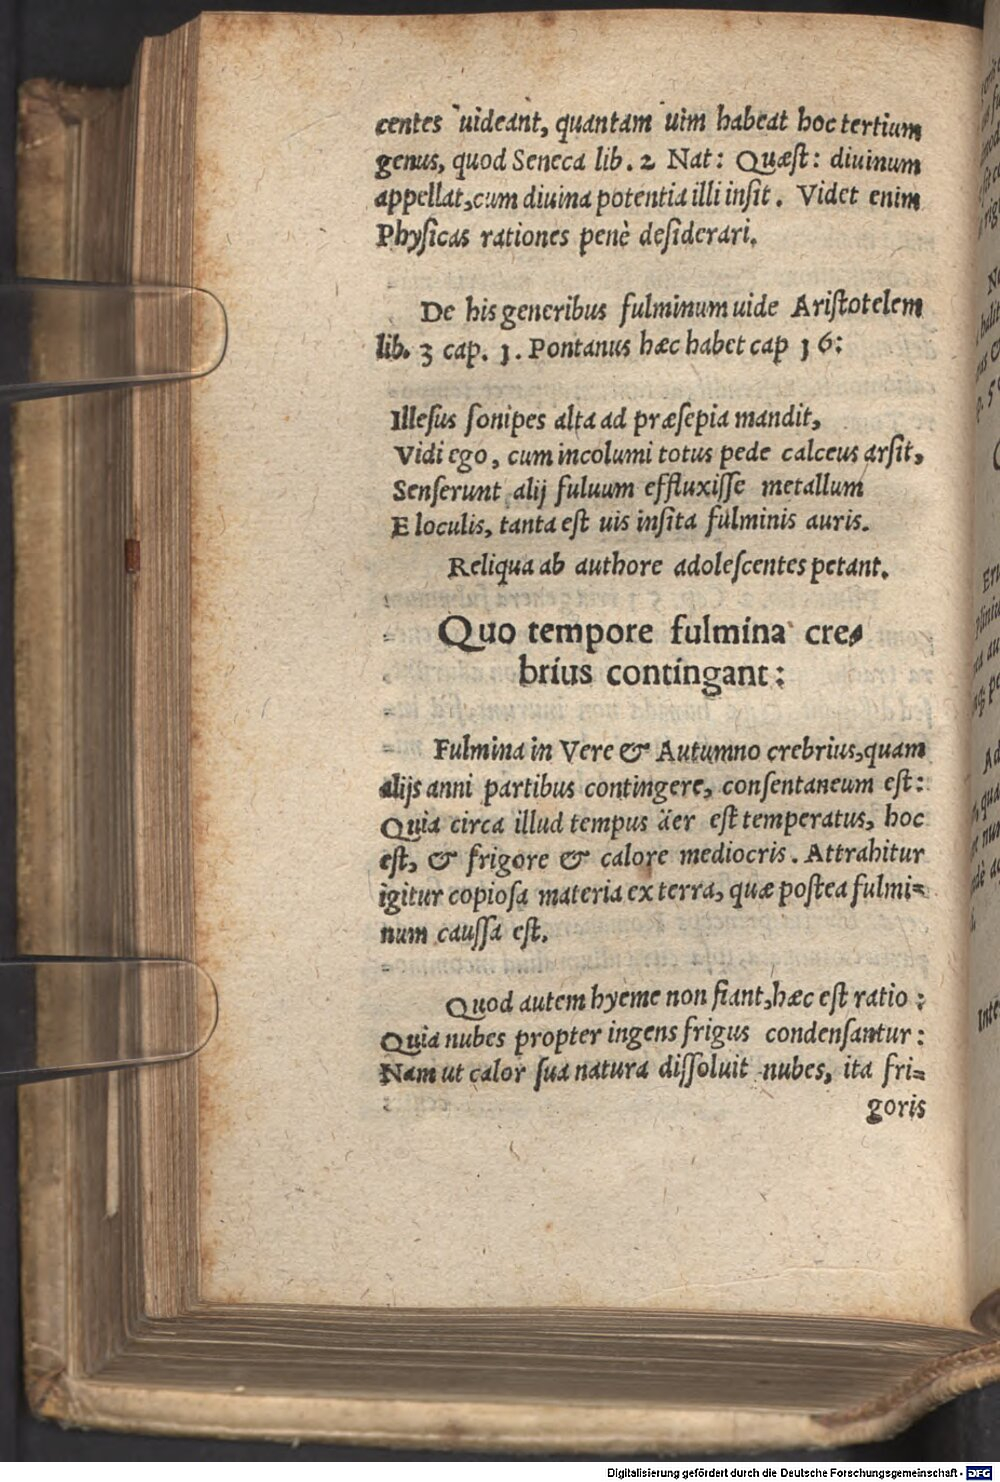 centes uideant, quantam uim habeat hoc tertium
genus, quod Seneca lib. 2 Nat: Quæst: diuinum
appellat, cum diuina potentia illi insit. Videt enim
Physicas rationes penè desiderari.
De his generibus fulminum uide Aristotelem
lib. 3 cap. 1. Pontanus hæc habet cap 16:
Illesus sonipes alta ad præsepia mandit,
Vidi ego, cum incolumi totus pede calceus arsit,
Senserunt alij fuluum effluxisse metallum
E loculis, tanta est uis insita fulminis auris.
Reliqua ab authore adolescentes petant.
Quo tempore fulmina cre=
brius contingant:
Fulmina in Vere & Autumno crebrius, quam
alijs anni partibus contingere, consentaneum est:
Quia circa illud tempus äer est temperatus, hoc
est, & frigore & calore mediocris. Attrahitur
igitur copiosa materia ex terra, quæ postea fulmi=
num caussa est.
Quod autem hyeme non fiant, hæc est ratio:
Quia nubes propter ingens frigus condensantur:
Nam ut calor sua natura dissoluit nubes, ita fri=
goris
Digitalisierung gefördert durch die Deutsche Forschungsgemeinschaft - DFG